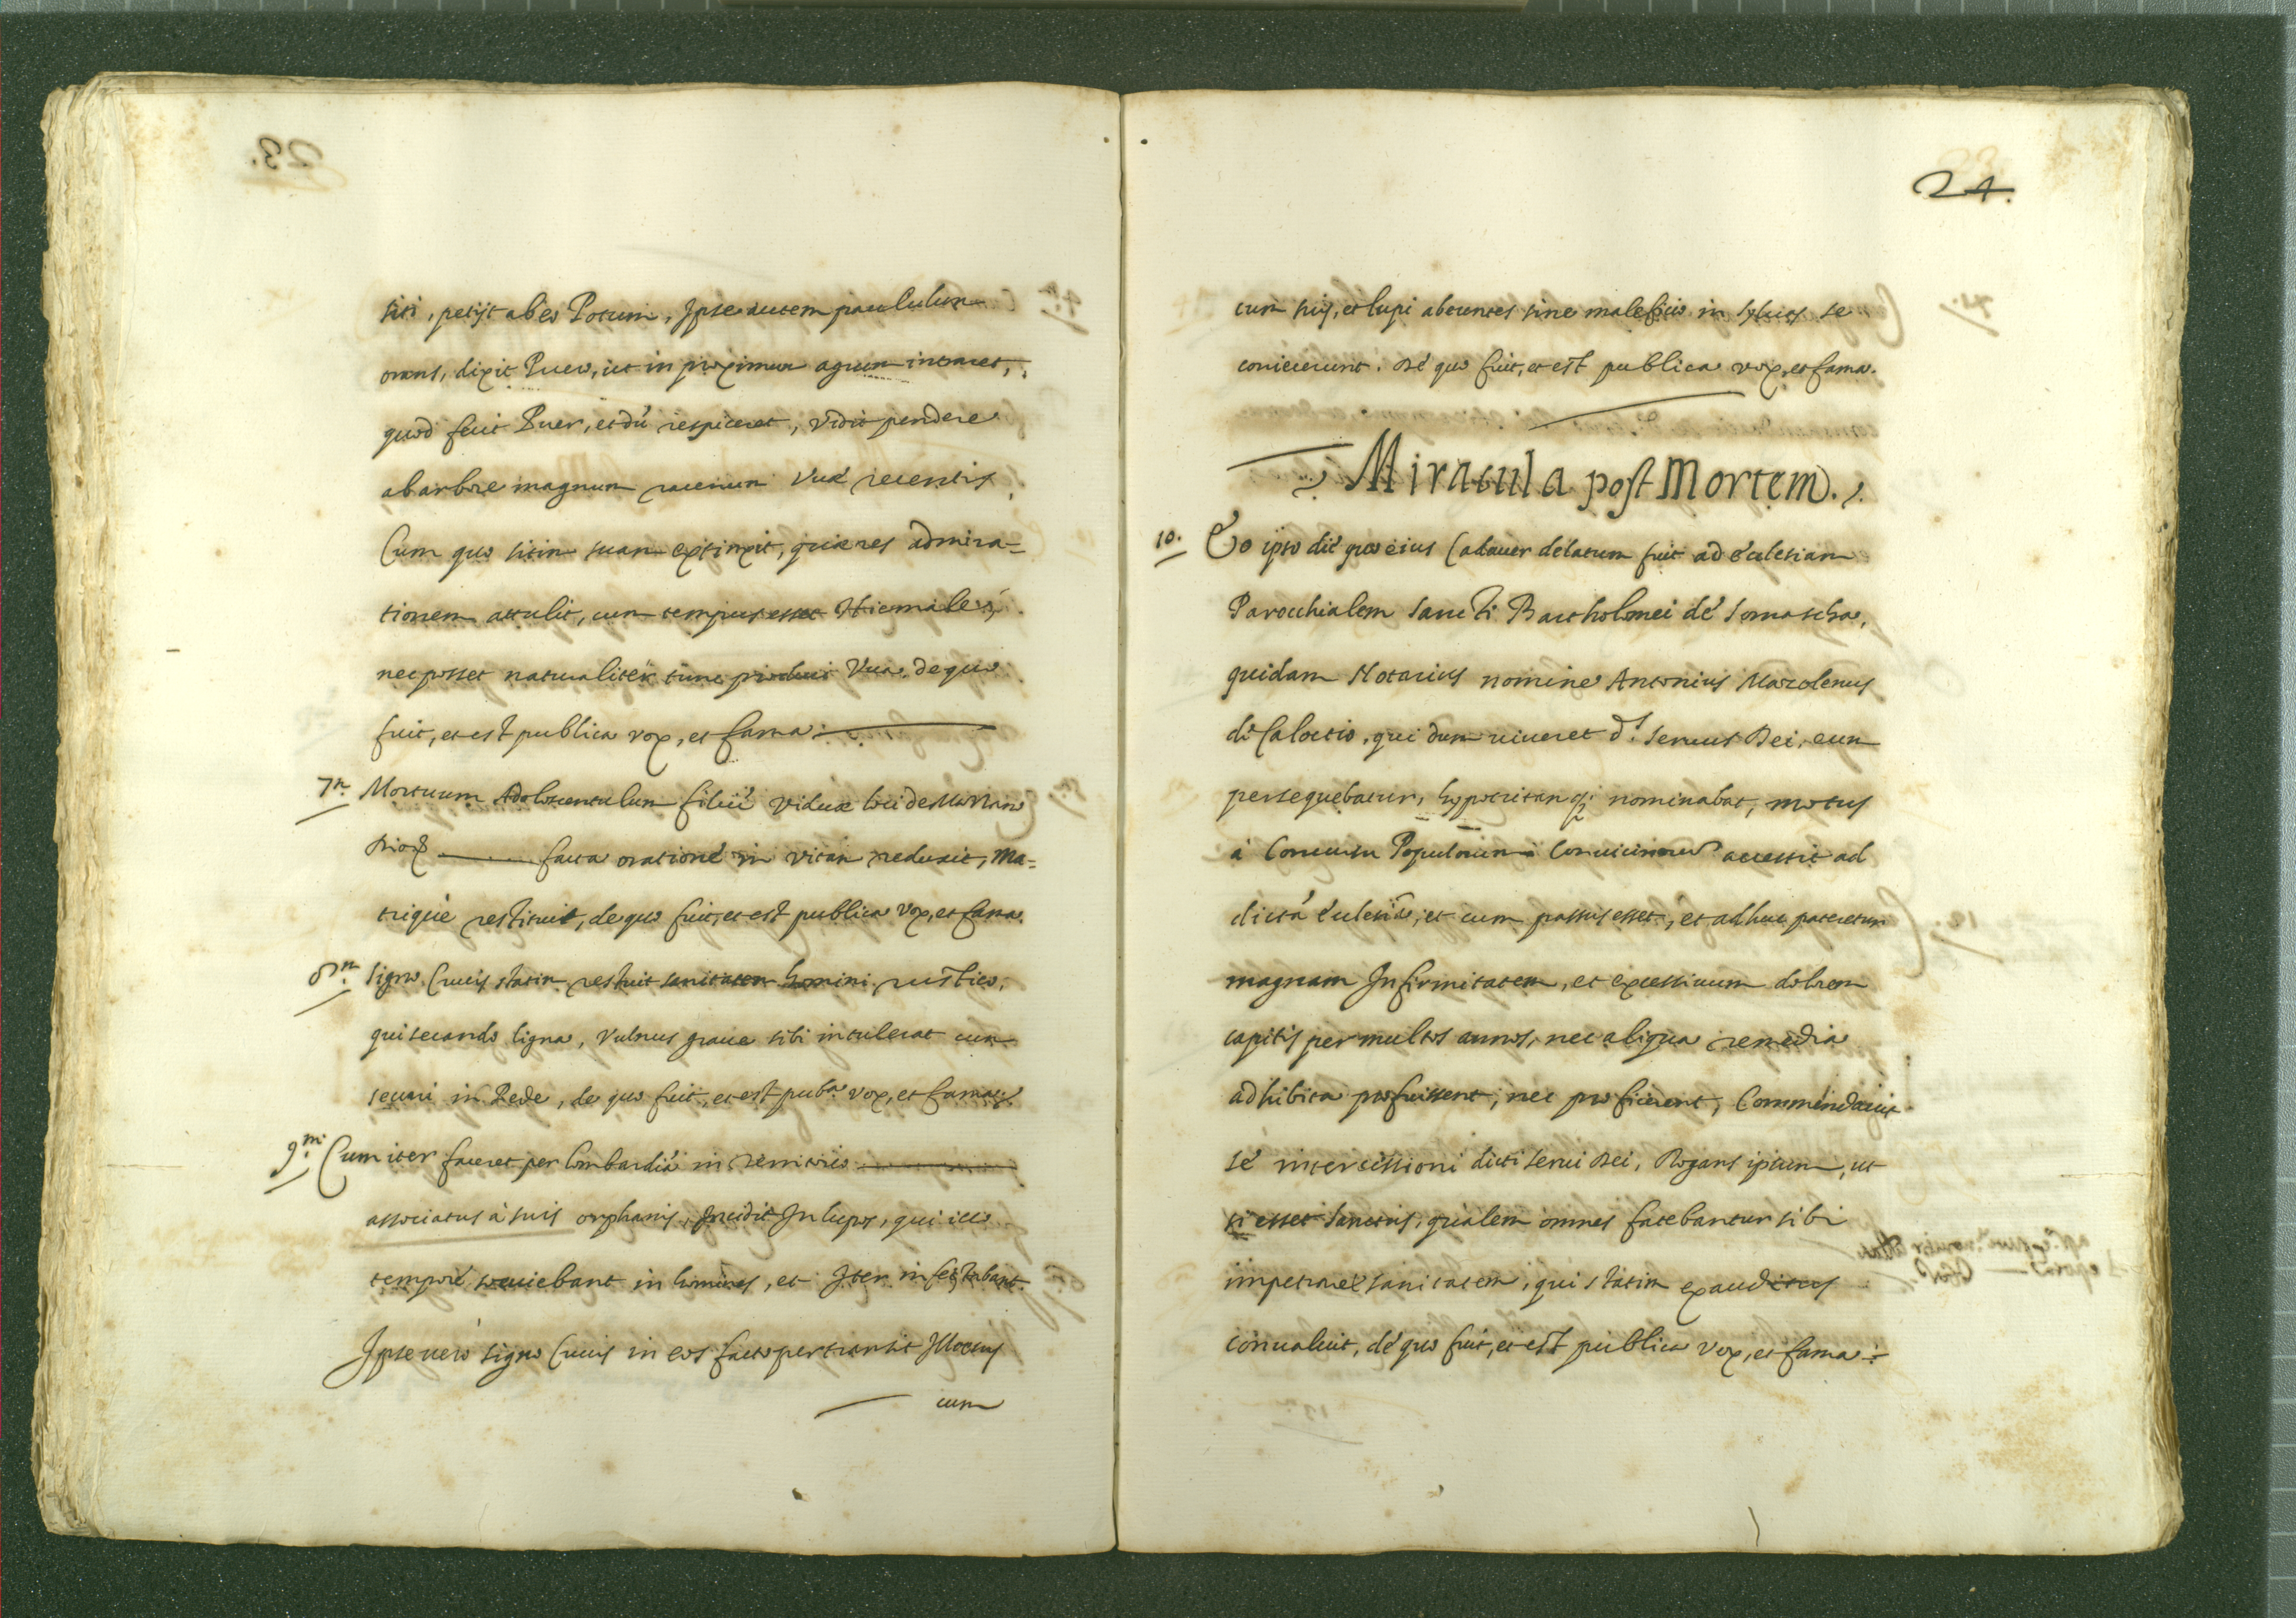 siti, petijt ab eo Potum, Ipse autem paululum
orans, dixit Puero, ut in proximum agrum intraret,
quod fecit Puer, et dũ respiceret, vidit pendere
ab arbore magnum racemum Vuæ recentis
Cum quo sitim suam extinxit, quæ res admira-
tionem attulit, cum tempus esset Hiemale,
nec posset naturaliter tunc produci Vua. de quo
fuit, et est publica vox, et fama.
7m. Mortuum Adolescentulum filiũ viduæ loci de
facta oratione in vitam reduxit, Ma-
trique restituit, de quo fuit, et est publica vox, et fama.
8m. Signo Crucis statim restituit sanitatem homini rustico,
qui secando ligna, vulnus graue sibi intulerat cum
securi in Pede, de quo fuit, et est puba. vox, et fama.
9m. Cum iter faceret per Lombardiã in
associatus à suis orphanis, Incidit In lupos, qui illo
tempore sæuiebant in homines, et Iter infestabant.
Ipse uerò signo Crucis in eos facto pertransit Illæsus
cum
24.
cum suis, et lupi abeuntes sine maleficio in syluas se
coniecerunt. De quo fuit, et est publica vox, et fama.
Miracula post Mortem.
10. Eo ipso die quo eius Cadauer delatum fuit ad Ecclesiam
Parocchialem Sancti Bartholomei de Somascha,
quidam Notarius nomine Antonius Mazolenus
de Calocio, qui dum uiueret ds. Seruus Dei, eum
persequebatur, hypocritam q; nominabat, motus
à Concursu Populorum Conuicinorum accessit ad
dictã Ecclesiã, et cum passus esset, et adhuc pateretur
magnam Infirmitatem, et excessiuum dolorem
capitis per multos annos, nec aliqua remedia
adhibita profuissent, nec proficerent, Commendauit
se intercessioni dicti Serui Dei, Rogans ipsum, ut
si esset Sanctus, qualem omnes fatebantur sibi
impetraret sanitatem, qui statim exauditus
conualuit, de quo fuit, et est publica vox, et fama